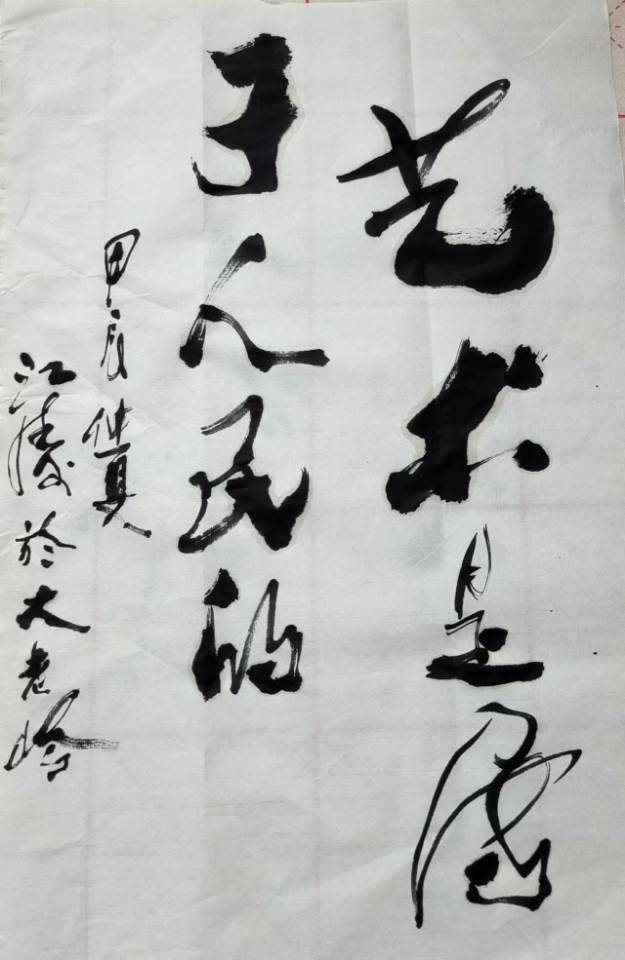 艺术是属
于人民的
甲辰仲夏
江涛於大老岭